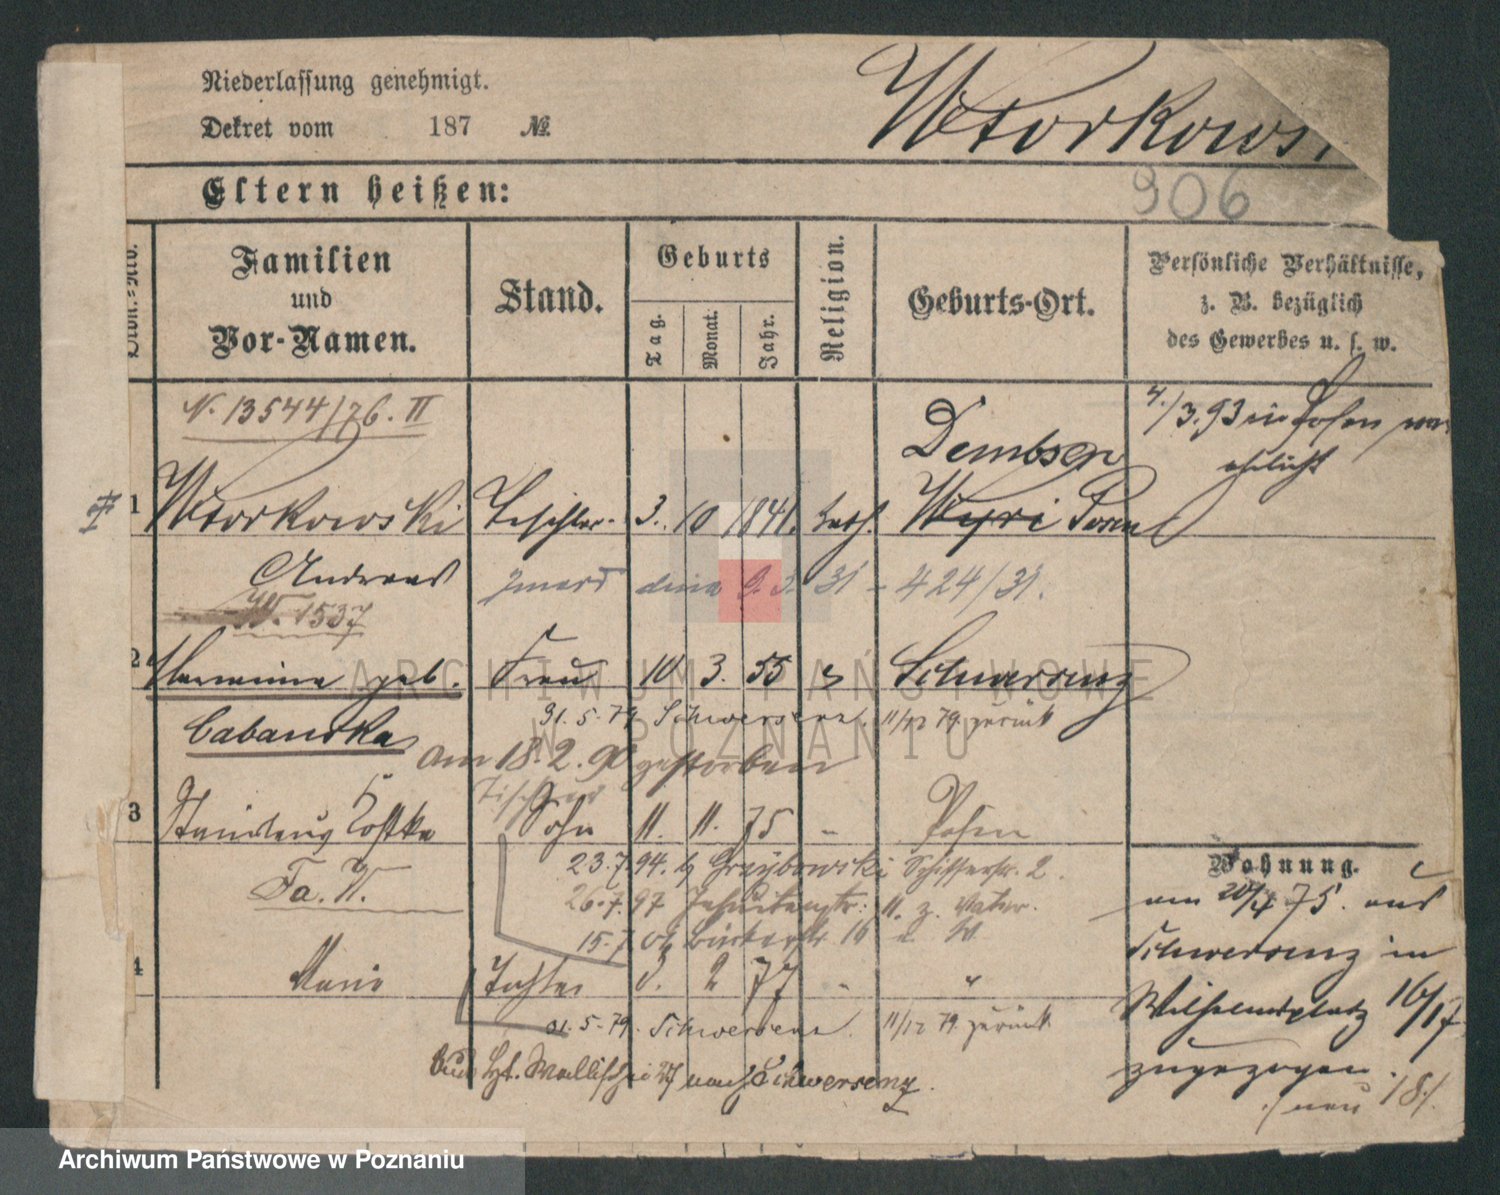 Niederlassung genehmigt.
Dekret vom 187 №
Wtorkows
906
Eltern heißen:
Familien und Vor-Namen.
Stand.
Geburts
Tag. Monat. Jahr.
Religion.
Geburts-Ort.
Persönliche Verhältnisse,
z. B. bezüglich
des Gewerbes u. s. w.
N. 13544/76. II
4./3.93 in Posen
ehelicht
Dembsen
1 Wtorkowski Tischler. 3. 10 1841. kath. Wyri Posen
Andreas zmarł dnia 9. 3. 31 - 424/31.
W. 1537
2 Hermine geb. Frau 10 3. 55 " Schwersenz
Cabanska 31.5.79 Schwersenz. 11/12 79. zurück
am 18.2.90 gestorben
Tischler
3 Stanislaus Kostka Sohn 11. 11. 75 " Posen
Fa. W.
23.7.94. b Grzybowski Schifferstr. 2.
26.7.97 11. z. Vater.
15.7 16
4 Marie Tochter 3. 2 77 " "
31.5.79. Schwersenz. 11/12 79. zurück
Wallischei 27 nach Schwersenz.
Wohnung.
am 20/4 75. aus
Schwersenz in
Wilhelmsplatz 16/17
zugezogen.
neu 18/.
ARCHIWUM PAŃSTWOWE
W POZNANIU
Archiwum Państwowe w Poznaniu